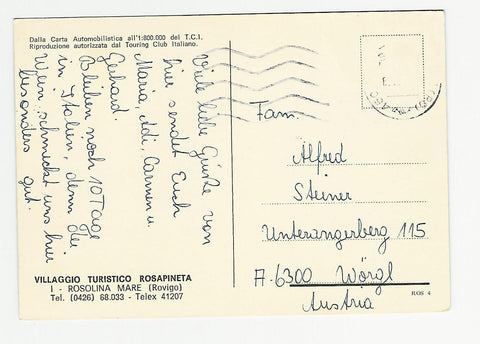 Dalla Carta Automobilistica all'1:800.000 del T.C.I.
Riproduzione autorizzata dal Touring Club Italiano.
Viele liebe Grüße von
hier sendet Euch
Maria, Adi, Carmen u.
Gerhard.
Bleiben noch 10 Tage
in Italien, denn der
Wein schmeckt uns hier
besonders gut.
VILLAGGIO TURISTICO ROSAPINETA
I - ROSOLINA MARE (Rovigo)
Tel. (0426) 68.033 - Telex 41207
Fam.
Alfred
Steiner
Unterangerberg 115
A-6300 Wörgl
Austria
ROS 4